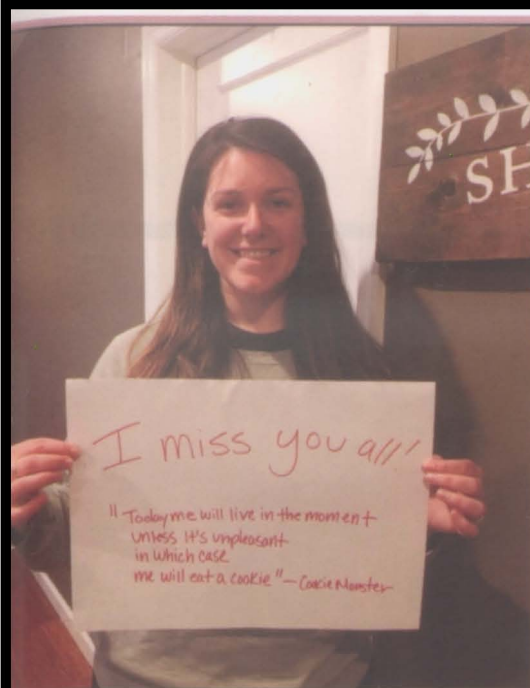 SH
I miss you all!
"Today me will live in the moment
unless it's unpleasant
in which case
me will eat a cookie" — Cookie Monster